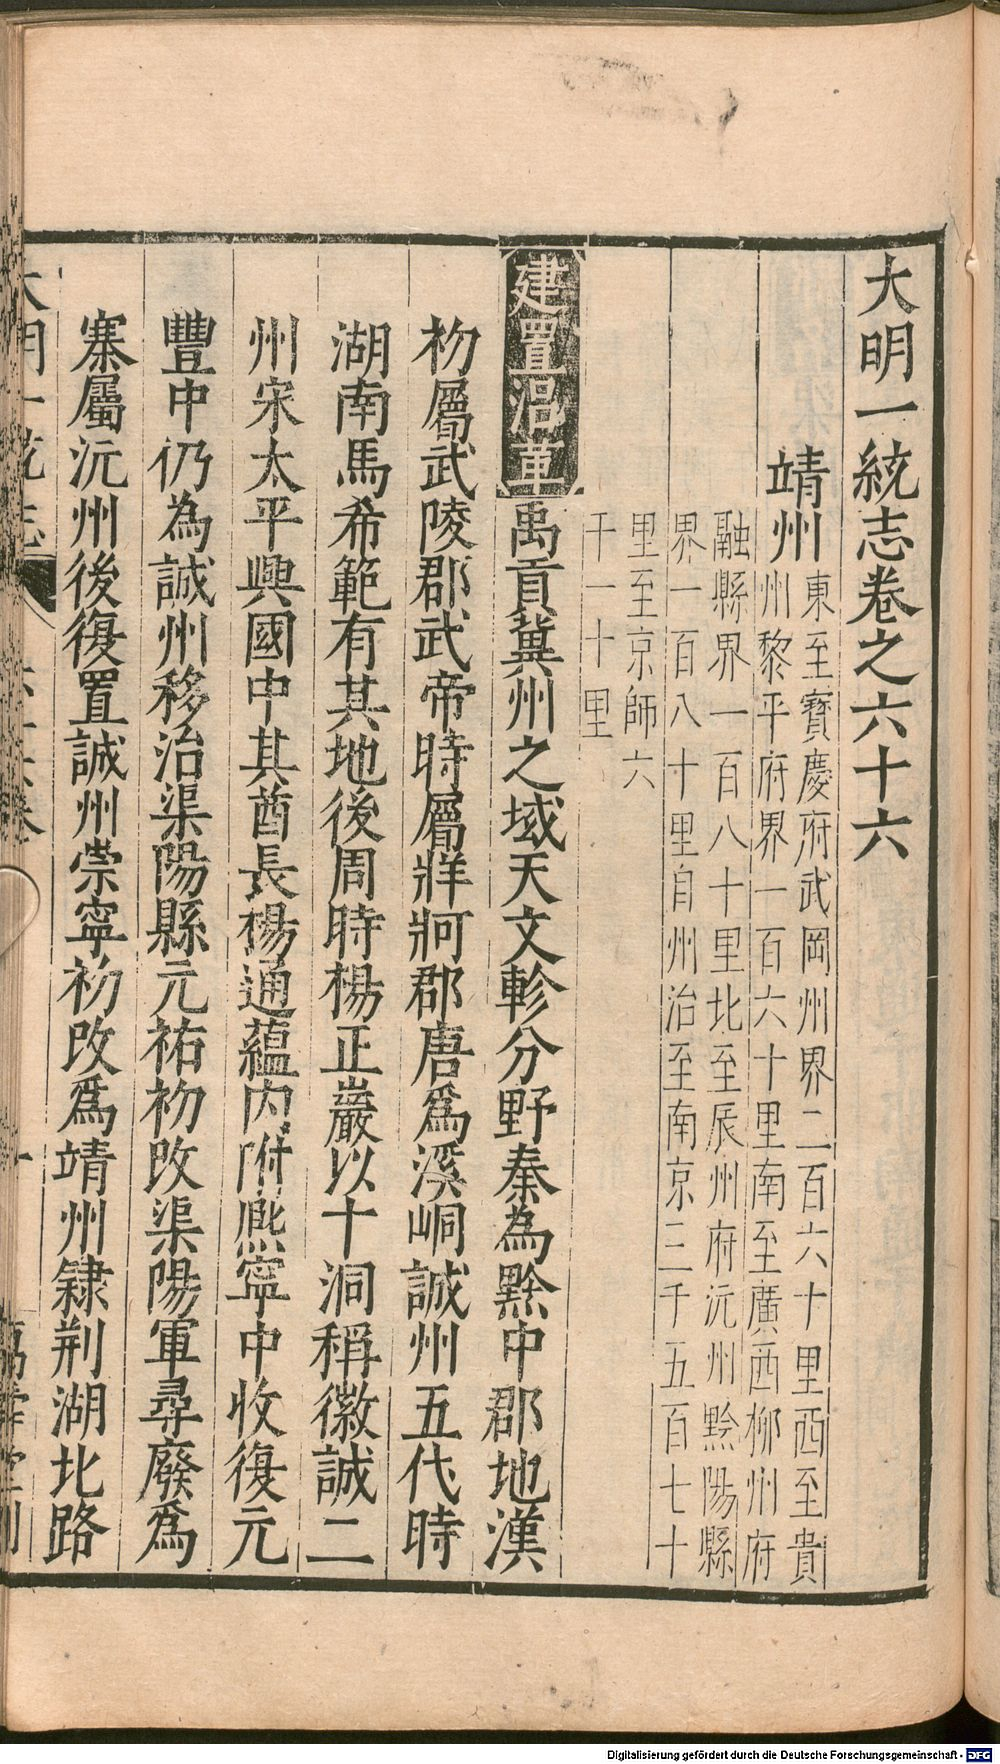 大明一統志卷之六十六
靖州
東至寶慶府武岡州界二百六十里西至貴
州黎平府界一百六十里南至廣西柳州府
融縣界一百八十里北至辰州府沅州黔陽縣
界一百八十里自州治至南京三千五百七十
里至京師六
千一十里
建置沿革禹貢冀州之域天文軫分野秦為黔中郡地漢
初屬武陵郡武帝時屬牂牁郡唐爲溪峒誠州五代時
湖南馬希範有其地後周時楊正巖以十洞稱徽誠二
州宋太平興國中其酋長楊通蘊内附熈寧中收復元
豐中仍為誠州移治渠陽縣元祐初改渠陽軍尋廢爲
寨屬沅州後復置誠州崇寧初改爲靖州隷荆湖北路
大明一統志
萬壽堂刊
Digitalisierung gefördert durch die Deutsche Forschungsgemeinschaft - DFG